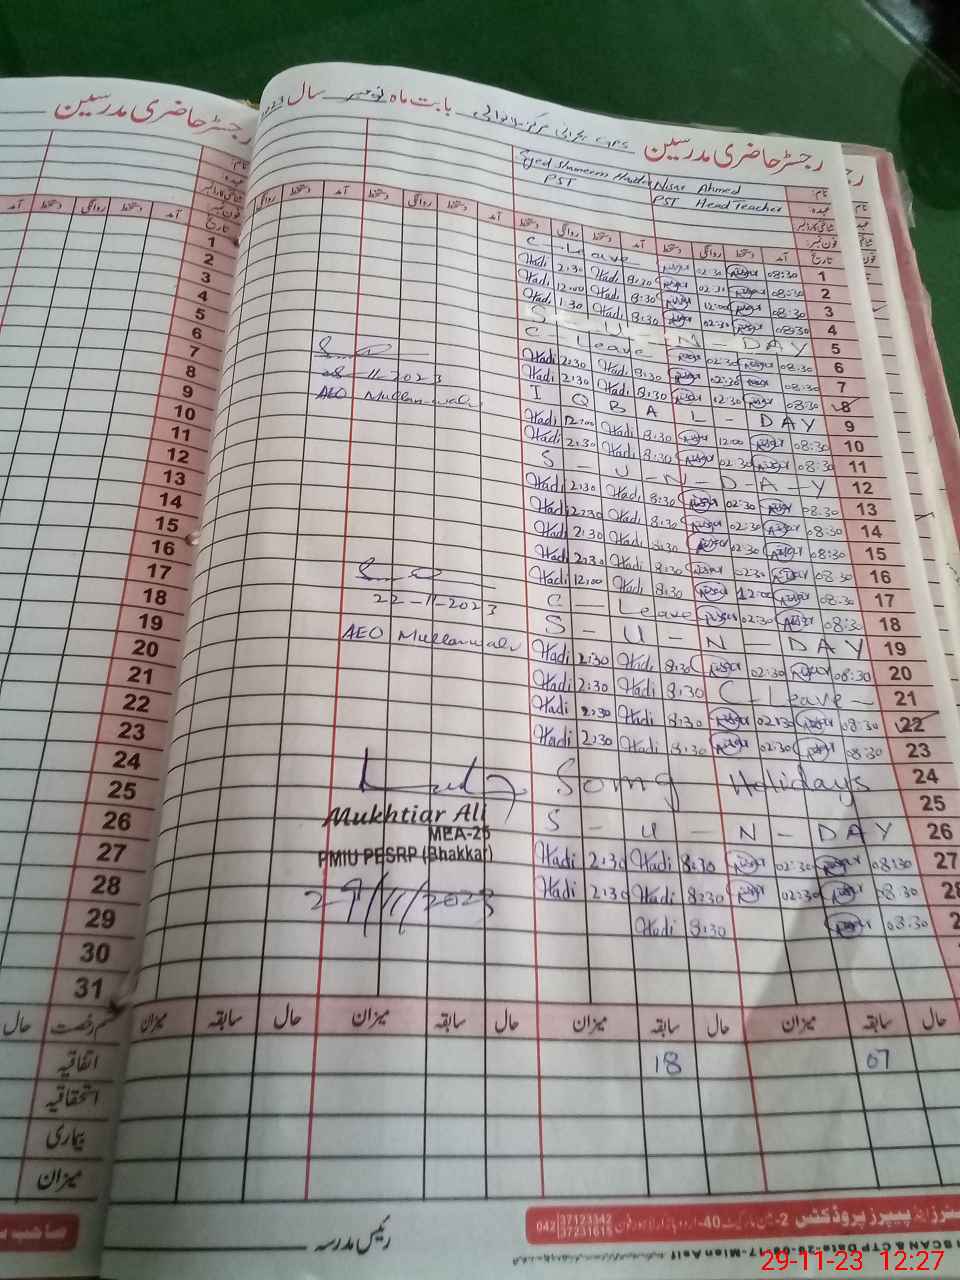 رجسٹر حاضری مدرسین
رجسٹر حاضری مدرسین GPS بابت ماہ نومبر سال 2023
Syed Shameem Haider Nisar Ahmed
PST PST Head Teacher
آمد دستخط روانگی دستخط تاریخ
C - Leave 02:30 08:30 1
Hadi 2:30 Hadi 8:30 02:30 08:30 2
Hadi 12:00 Hadi 8:30 12:00 08:30 3
Hadi 1:30 Hadi 8:30 02:30 08:30 4
S - U - N - DAY 5
C Leave 02:30 08:30 6
Hadi 2:30 Hadi 8:30 02:30 08:30 7
Hadi 2:30 Hadi 8:30 12:30 08:30 8
08-11-2023
AEO Mullanwali
I Q B A L - DAY 9
Hadi 12:00 Hadi 8:30 12:00 08:30 10
Hadi 2:30 Hadi 8:30 02:30 08:30 11
S - U - N - D - A - Y 12
Hadi 2:30 Hadi 8:30 02:30 08:30 13
Hadi 2:30 Hadi 8:30 02:30 08:30 14
Hadi 2:30 Hadi 8:30 02:30 08:30 15
Hadi 2:30 Hadi 8:30 02:30 08:30 16
Hadi 12:00 Hadi 8:30 12:00 08:30 17
C - Leave 02:30 08:30 18
S - U - N - DAY 19
22-11-2023
AEO Mullanwali
Hadi 2:30 Hadi 8:30 02:30 08:30 20
Hadi 2:30 Hadi 8:30 C - Leave - 21
Hadi 2:30 Hadi 8:30 02:30 08:30 22
Hadi 2:30 Hadi 8:30 02:30 08:30 23
Somg Holidays 24
25
S - U - N - DAY 26
Mukhtiar Ali
MEA-25
PMIU PESRP (Bhakkar)
29/11/2023
Hadi 2:30 Hadi 8:30 02:30 08:30 27
Hadi 2:30 Hadi 8:30 02:30 08:30 28
Hadi 8:30 08:30 2
1
2
3
4
5
6
7
8
9
10
11
12
13
14
15
16
17
18
19
20
21
22
23
24
25
26
27
28
29
30
31
حال سابقہ میزان حال سابقہ میزان حال سابقہ میزان حال سابقہ میزان قسم رخصت حال
07 18 اتفاقیہ
استحقاقیہ
بیماری
میزان
رئیس مدرسہ
پیپرز پروڈکٹس
042 37123342
37231615
29-11-23 12:27